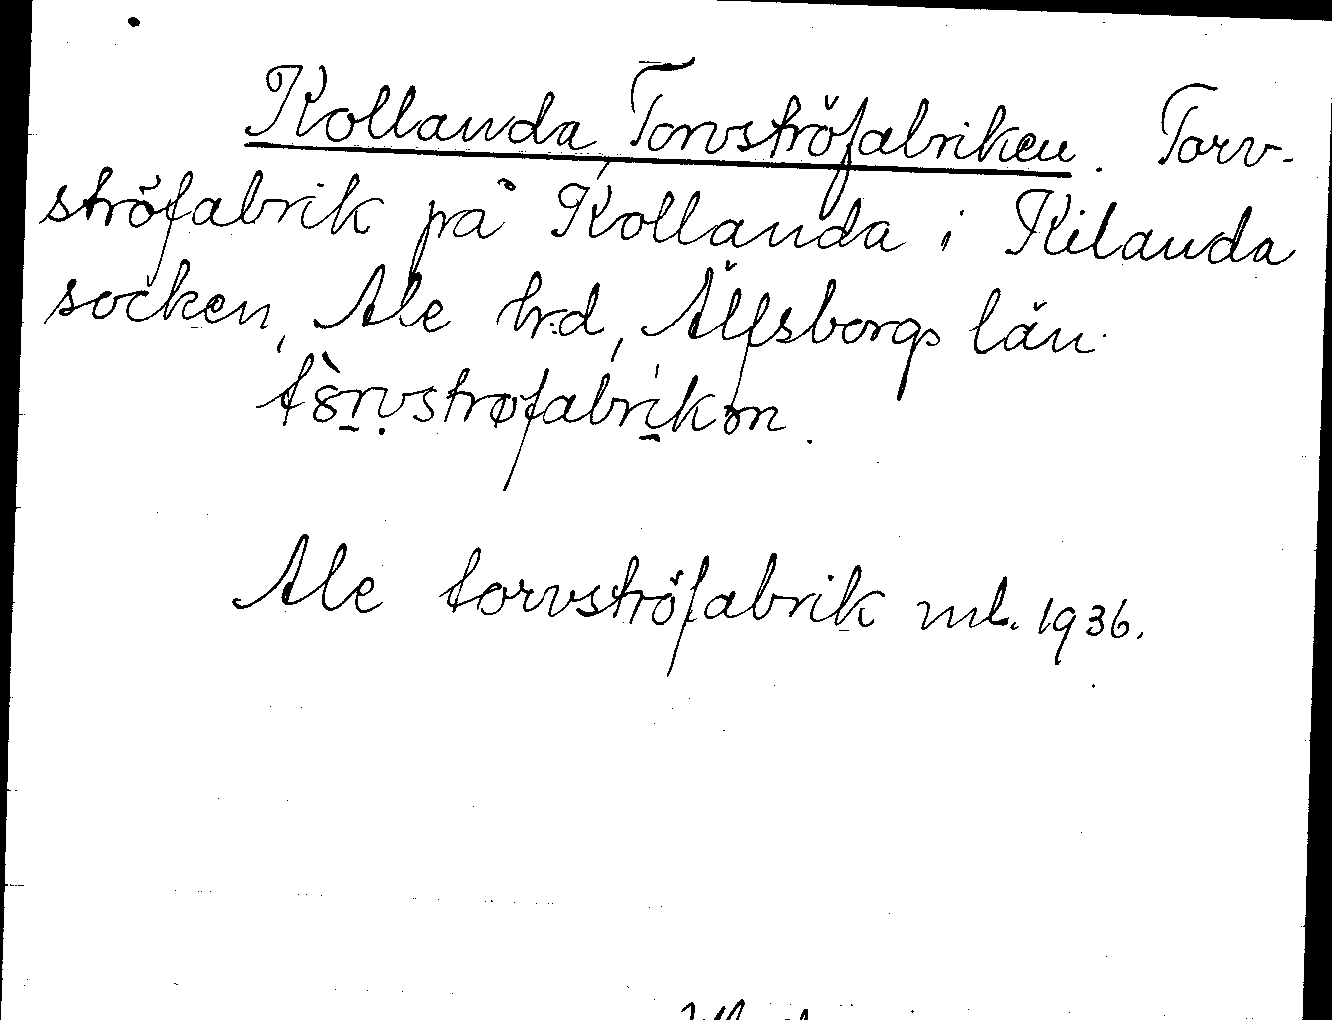 Kollanda, Torvströfabriken. Torv-
ströfabrik på Kollanda i Kilanda
socken, Ale hrd, Älfsborgs län.
Ale torvströfabrik mb. 1936.